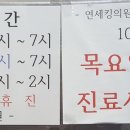 간
시 ~ 7시
시 ~ 7시
시 ~ 2시
휴 진
- 연세킹의원
10
목요일
진료시